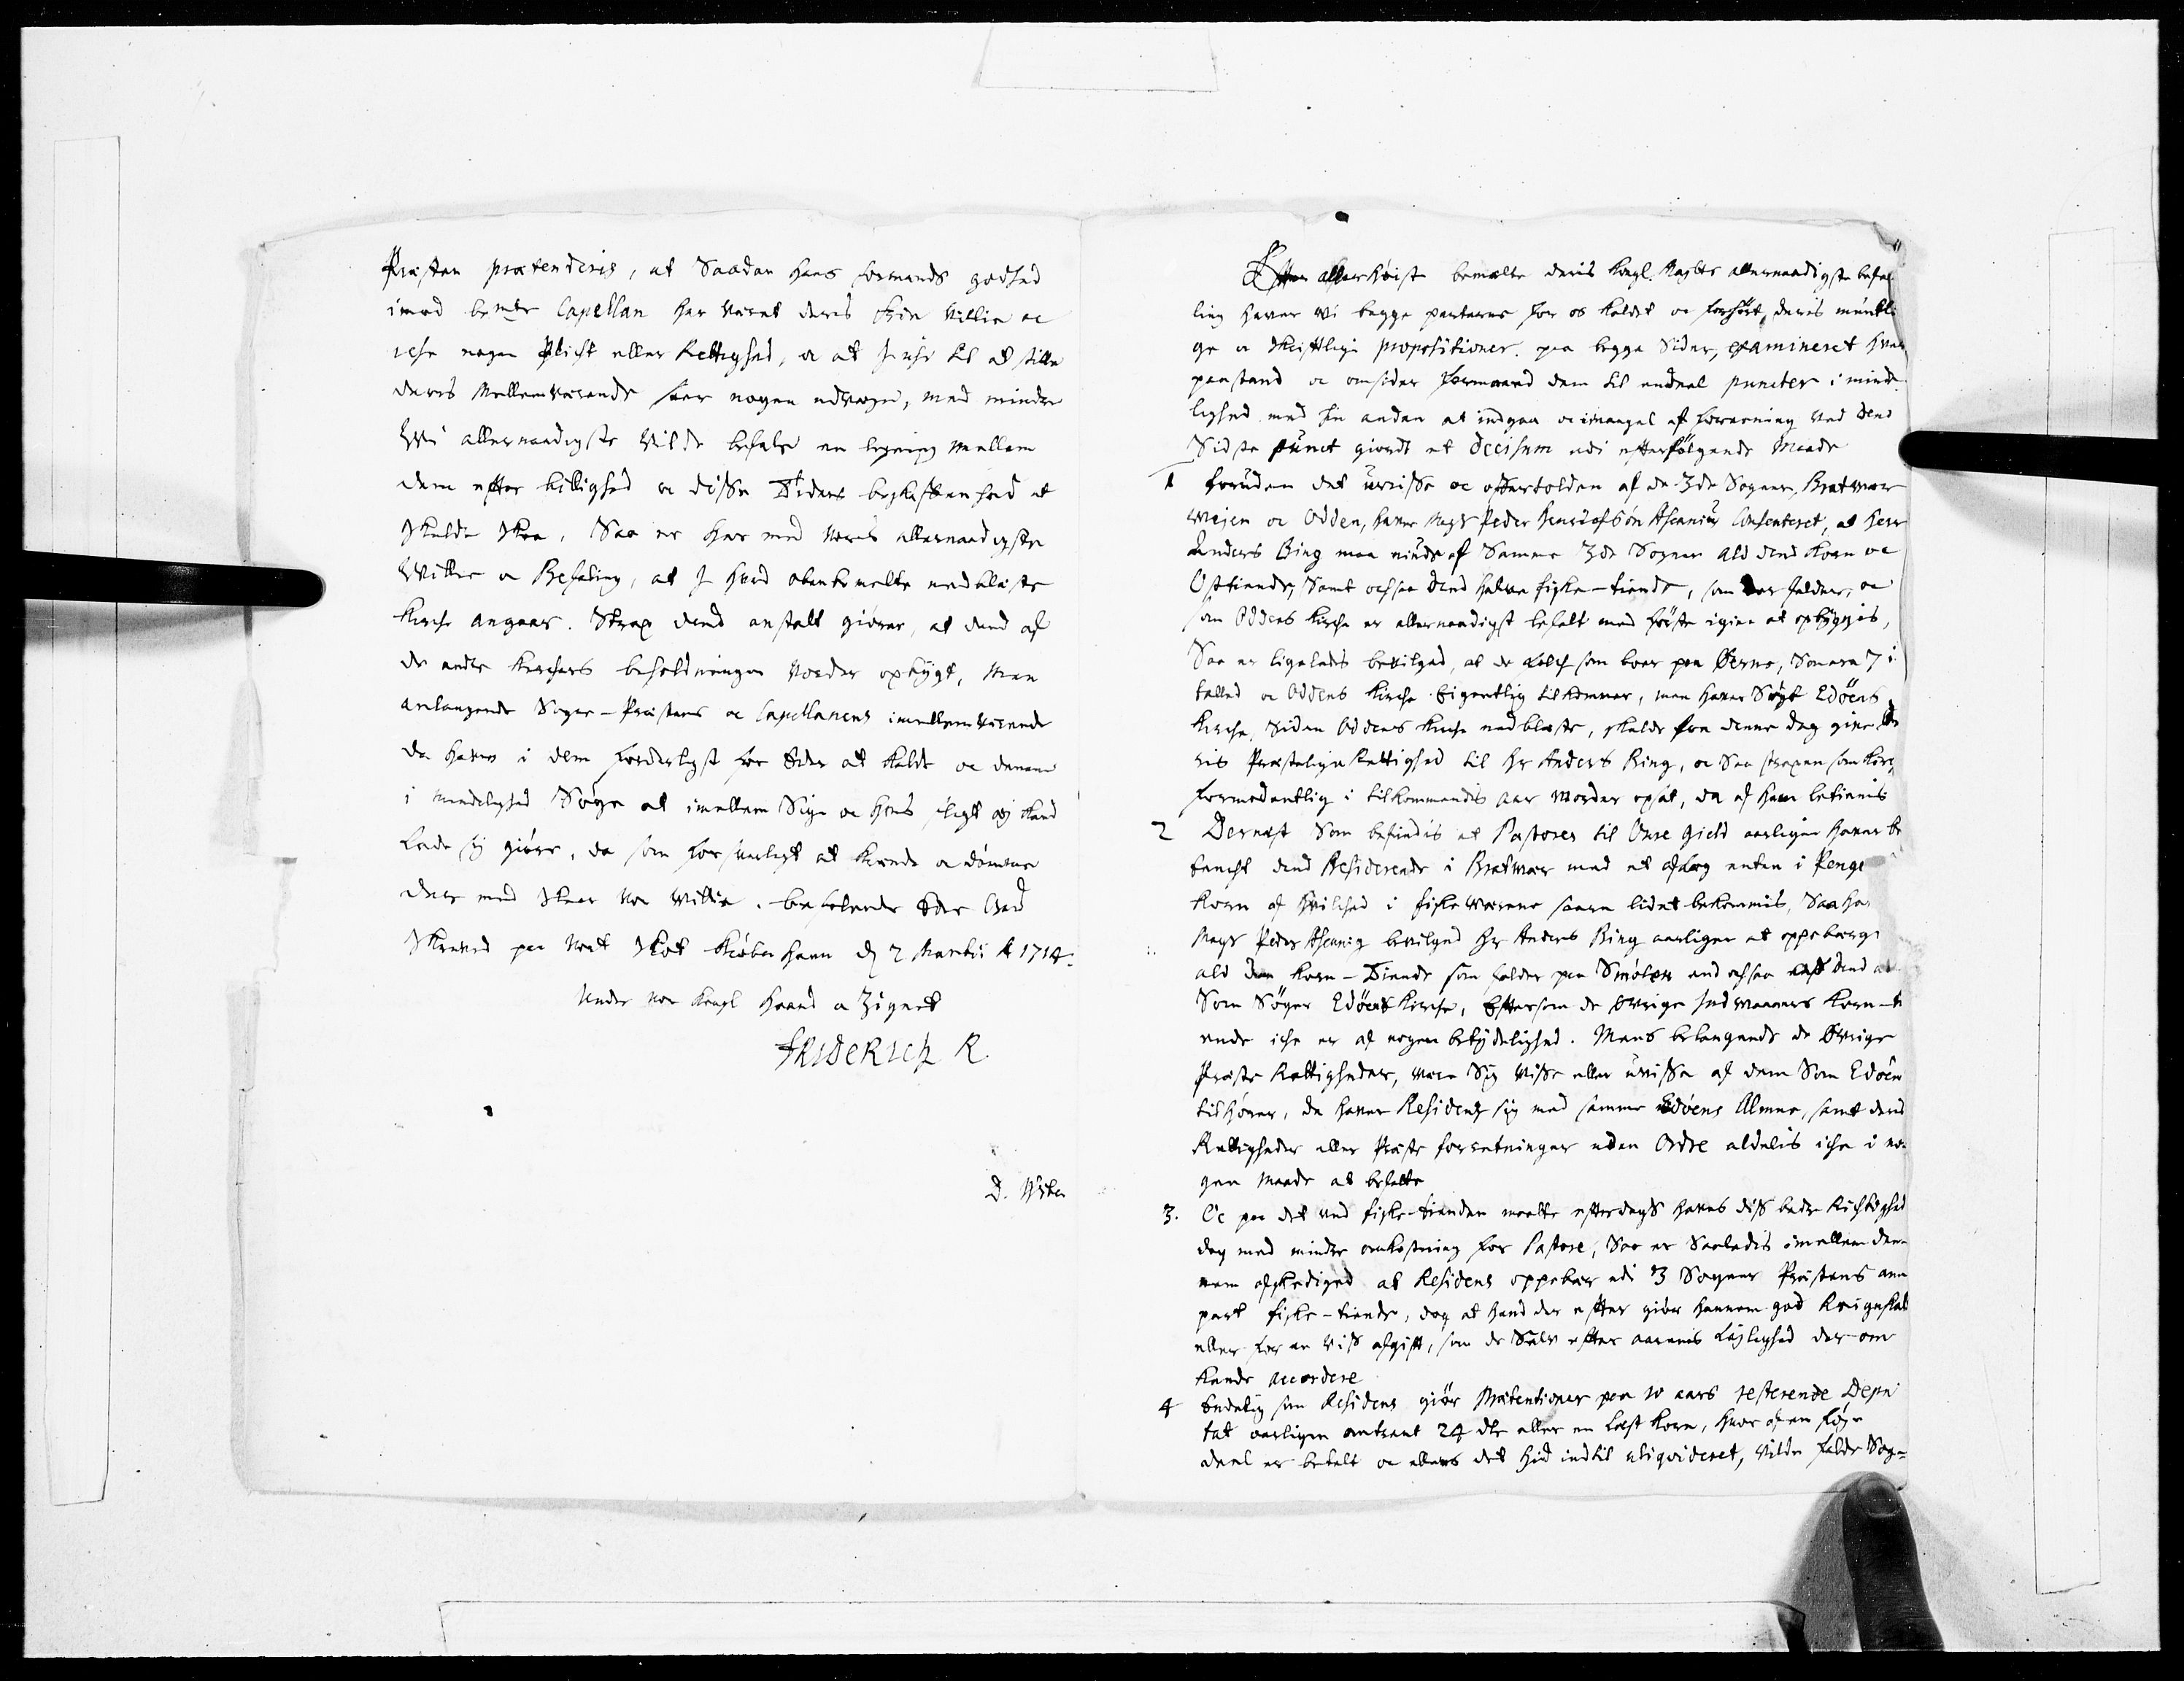 Præsten prætenderis, at Saadan hans formands godhed
imod bemte Capellan har været deris frie Villie oc
iche nogen Plicht eller Rettighed, oc at J iche til at stille
deris Mellemværende saar nogen udveye, med mindre
Wi allernaadigste vilde befale en ligning mellem
dem effter billighed oc disse Tiders beskaffenhed at
skulde skee, Saa er her med Voris allernaadigste
Villie oc Befaling, at J hvad ommelte nedblæste
Kirche angaar. Strax dend anstalt giører, at dend af
de andre Kirchers beholdninger vorder opbygt, Men
anlangende Sogne-Præstens oc Capellanens imellemværende
da haver i dem forderligst for Eder at kalde oc dennem
i mindelighed Søge at imellem Sige oc hvis sligt ej kand
lade sig giøre, da som forsvarligt at kiende oc dømme
der med skeer vor Villie. befalende Eder Gud
Skrevet paa vort Slot Kiøbenhavn d 2 Martii Ao 1714.
Under vor Kongl Haand oc Zignet
FRIDERICH R.
D. Wibe
Effter allerhøist bemælte deris Kongl. Maytts allernaadigste befa-
ling haver Vi begge parterne for os kaldet oc forhørt, deris mundtli
ge oc skrifftlige propositioner. paa begge Sider, examineret hver
paastand oc omsider formaaed dem til endeel puncter i minde
lighed med hin anden at indgaa oc i mangel af forening ved dend
Sidste punct giordt et Decisum udi effterfølgende Maade
1 foruden det uvisse oc offertolden af de 3de Sogner, Bratvær
Veien oc Odden, haver Magr Peder Ascanius Consenteret, at herr
Anders Bing maa niude af Samme 3de Sogner ald dend Korn oc
Ostiende, Samt ochsaa dend halve fiske-tiende, som der falder, oc
som Oddens Kirche er allernaadigst befalt med første igien at opbyggis,
Saa er ligeledis bevilged, at de Folch som boer paa
talled oc Oddens Kirche Eigentlig tilkommer, men haver Søgt Edøens
Kirche, Siden Oddens Kirche nedblæste, skulde fra denne dag give de
ris Præstelige Rettighed til Hr Anders Bing, oc Saa straxen som Kirc,
formodentlig i tilkommendis aar vorder opsat, da af ham betienis
2 Dernæst Som befindis at Pastores til Gield aarligen haver be
tencht dend Residerende i Bratvær med et aflæg enten i Penge
Korn af hvilched i fiske værene saare lidet bekommis, Saa ha
Magr Peder Ascanig bevilged Hr Anders Bing aarligen at oppebærge
ald den Korn-Tiende som falder paa Smølen end ochsaa dend
Som Søger Edøens Kirche, Efftersom de øvrige Indvaaners Korn-ti
ende iche er af nogen betydelighed. Mens belangende de Øvrige
Præste Rettigheder, være Sig Visse eller uvisse af dem Som Edøen
tilhører, da haver Residens sig med samme Edøens Almue, samt deris
Rettigheder eller Præste forretninger uden Ordre aldelis iche i no-
gen Maade at befatte
3. Oc paa det ved fiske-tienden maatte effterdags haves diss bedre Richtighed
dog med mindre omkostning for Pastore, Saa er Saaledis imellem den-
nem afskediged at Residens oppebær udi 3 Sogner Præstens ann
part fiske-tiende, dog at hand der effter giør hannem god Reignskab
eller for en Viss afgifft, som de Selv effter aarenis Lejlighed der-om
kunde accordere
4 Endelig som Residens giør Prætentioner paa 10 aars resterende Depu
tat aarligen omtrent 24 dlr eller en Læst Korn, hvor af en føje
deel er betalt oc ellers det hid indtil uliqvideret, vilde falde Sog-